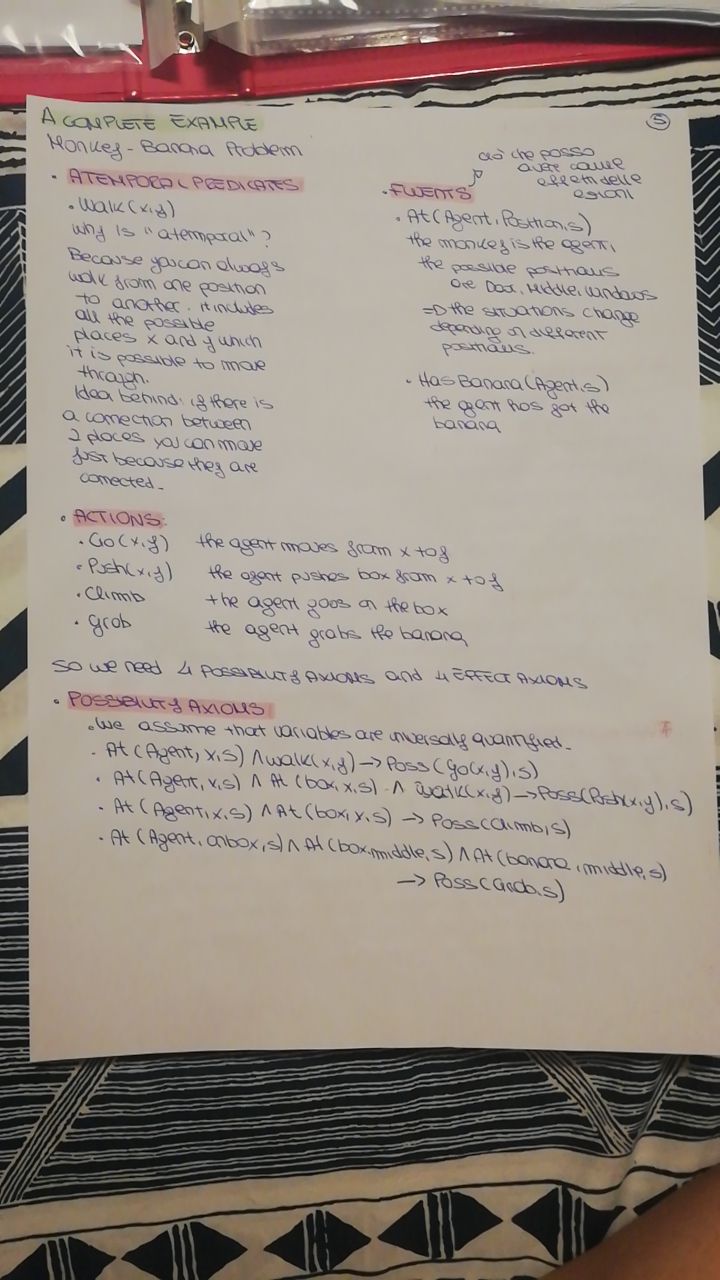 A COMPLETE EXAMPLE
5
Monkey - Banana Problem
• ATEMPORAL PREDICATES
• Walk(x,y)
why is "atemporal"?
Because you can always
walk from one position
to another. it includes
all the possible
places x and y which
it is possible to move
through.
Idea behind: if there is
a connection between
2 places you can move
just because they are
connected.
ciò che posso
avere come
effetti delle
azioni
• FLUENTS
• At(Agent, Position,s)
the monkey is the agent,
the possible positions
are Door, Middle, Windows
=D the situations change
depending on different
positions.
• Has Banana(Agent,s)
the agent has got the
banana
• ACTIONS:
• Go(x,y) the agent moves from x to y
• Push(x,y) the agent pushes box from x to y
• Climb the agent goes on the box
• grab the agent grabs the banana
SO we need 4 POSSIBILITY AXIOMS and 4 EFFECT AXIOMS
• POSSIBILITY AXIOMS
• We assume that variables are universally quantified.
• At(Agent, x,s) ∧ walk(x,y) → Poss(go(x,y),s)
• At(Agent, x,s) ∧ At(box,x,s) ∧ walk(x,y) → Poss(Push(x,y),s)
• At(Agent,x,s) ∧ At(box,x,s) → Poss(Climb,s)
• At(Agent, onbox,s) ∧ At(box,middle,s) ∧ At(banana, middle,s)
→ Poss(Grab,s)